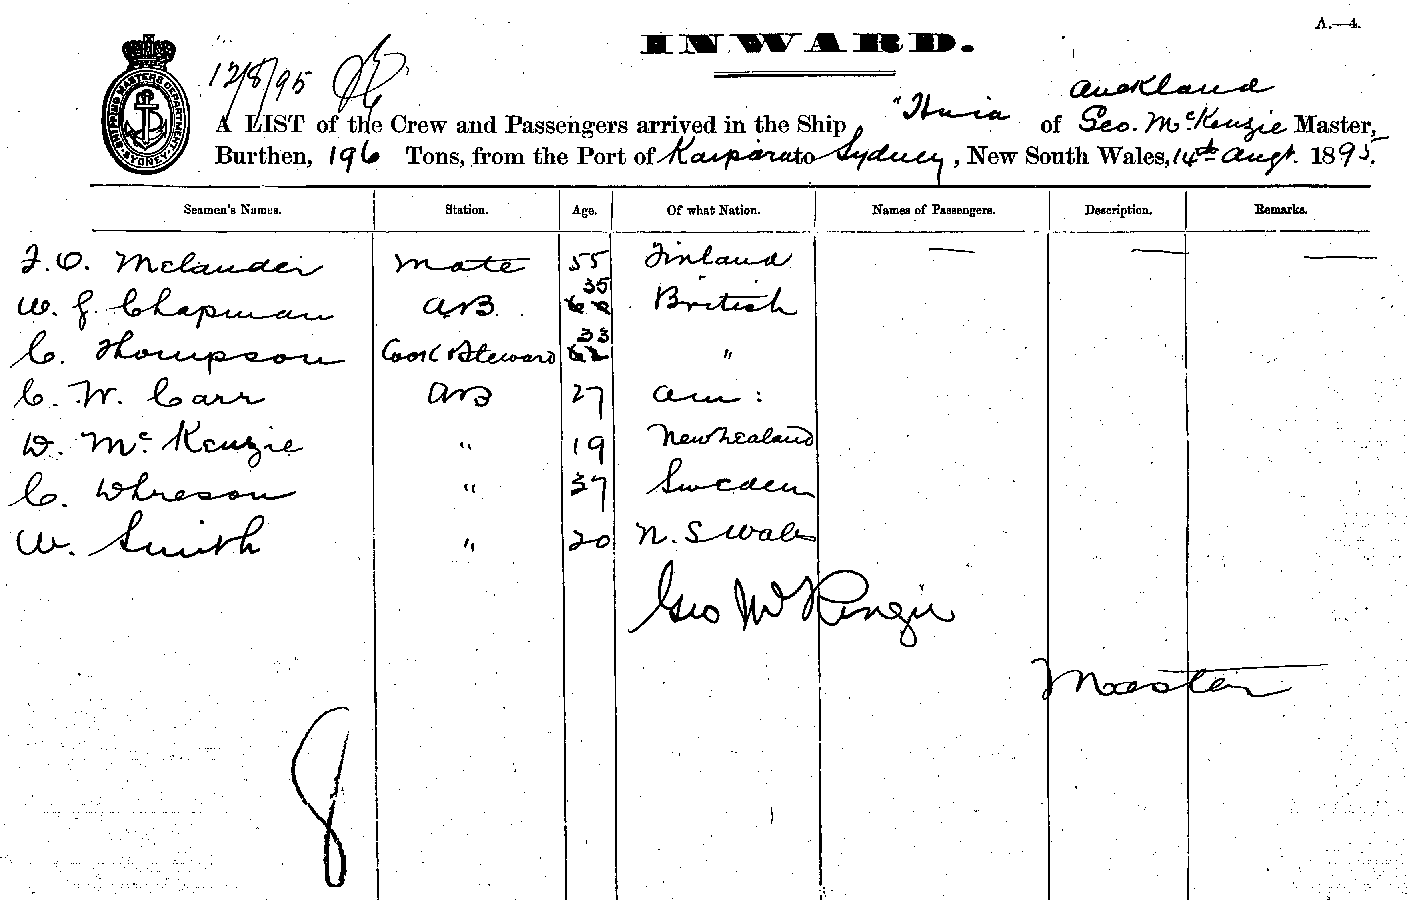 A.—4.
INWARD.
SHIPPING MASTERS DEPARTMENT SYDNEY
12/8/95
Auckland
A LIST of the Crew and Passengers arrived in the Ship "Huia of Geo. McKenzie Master,
Burthen, 196 Tons, from the Port of Kaipara to Sydney, New South Wales, 14th Augt. 1895.
Seamen's Names. Station. Age. Of what Nation. Names of Passengers. Description. Remarks.
F. O. Melander Mate 55 Finland — — —
35
W. J. Chapman AB British
33
C. Thompson Cook & Steward 62 "
C. W. Carr AB 27 Am:
D. McKenzie " 19 New Zealand
C. " 37 Sweden
W. Smith " 20 N. S Wales
Geo McKenzie
Master
8